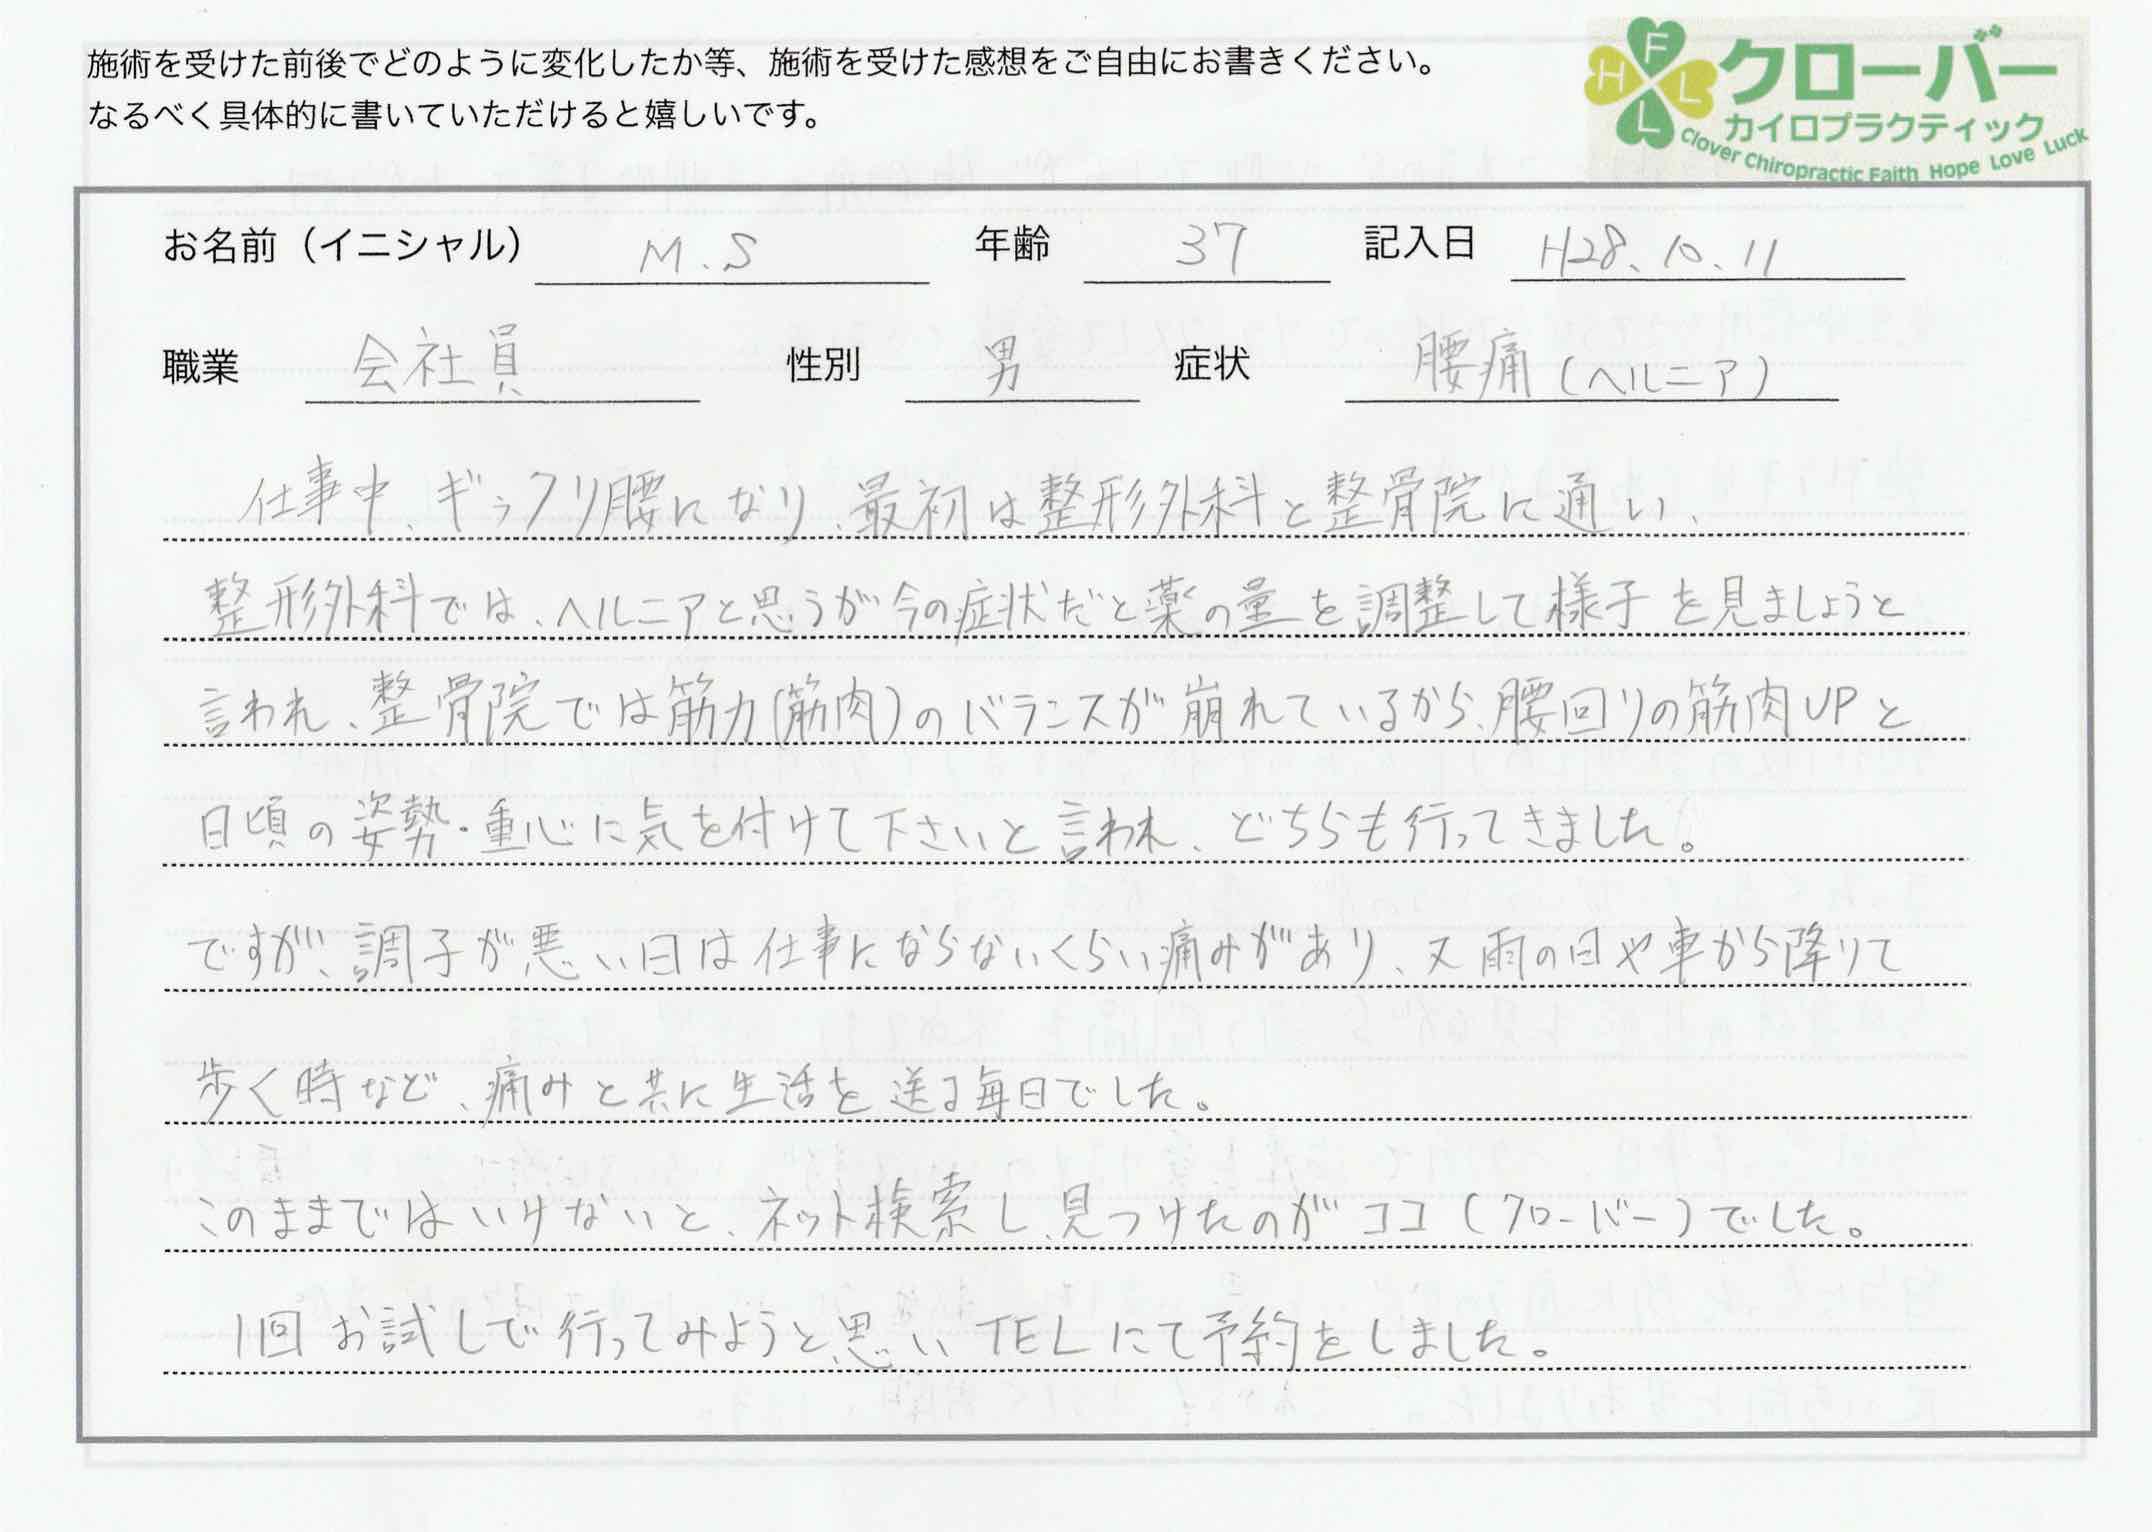 施術を受けた前後でどのように変化したか等、施術を受けた感想をご自由にお書きください。
なるべく具体的に書いていただけると嬉しいです。
F H L L
クローバー
カイロプラクティック
Clover Chiropractic Faith Hope Love Luck
お名前（イニシャル） M.S 年齢 37 記入日 H28.10.11
職業 会社員 性別 男 症状 腰痛（ヘルニア）
仕事中、ギックリ腰になり、最初は整形外科と整骨院に通い、
整形外科では、ヘルニアと思うが今の症状だと薬の量を調整して様子を見ましょうと
言われ、整骨院では筋力(筋肉)のバランスが崩れているから、腰回りの筋肉UPと
日頃の姿勢・重心に気を付けて下さいと言われ、どちらも行ってきました。
ですが、調子が悪い日は仕事にならないくらい痛みがあり、又雨の日や車から降りて
歩く時など、痛みと共に生活を送る毎日でした。
このままではいけないと、ネット検索し、見つけたのがココ（クローバー）でした。
1回お試しで行ってみようと思いTELにて予約をしました。